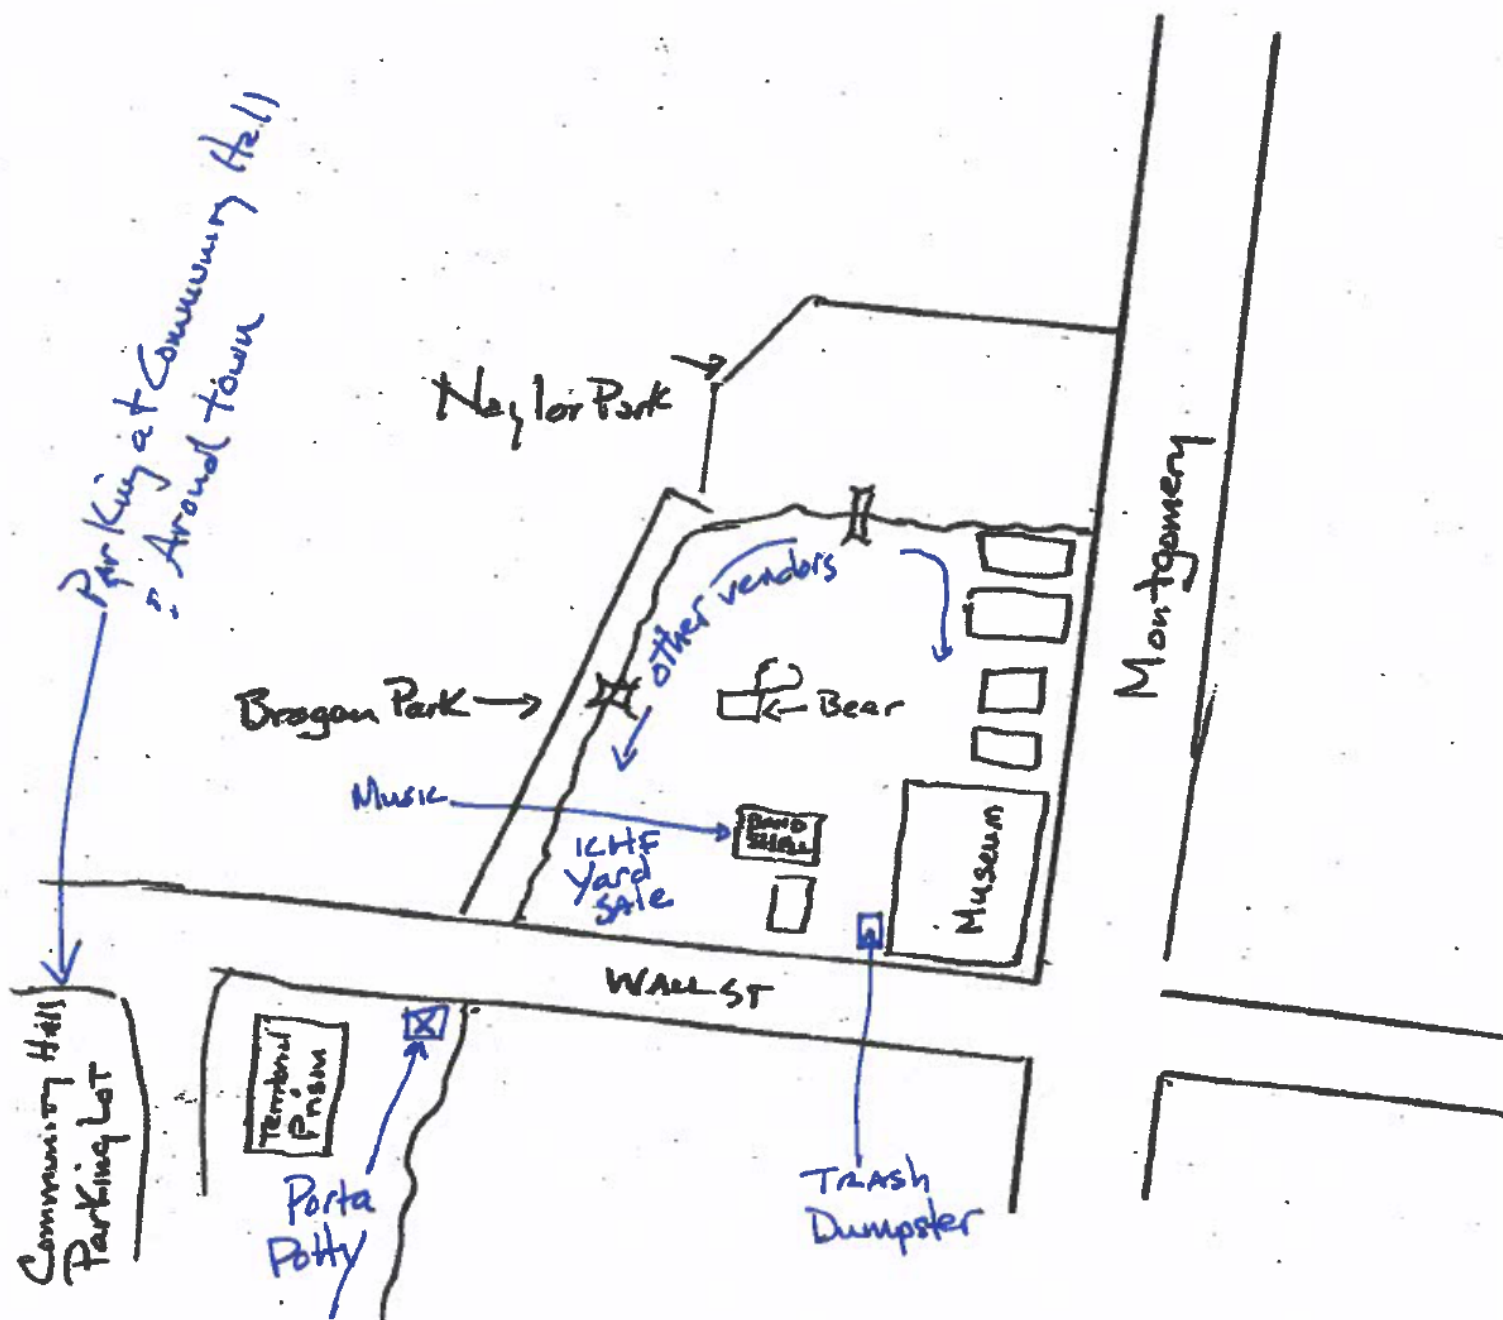 Parking at Community Hall
: Around town
Naylor Park
other vendors
Montgomery
Brogan Park
Bear
Music
BAND
SHELL
ICHF
Yard
SALE
Museum
WALL ST
Community Hall
Parking Lot
Territorial
Prison
Porta
Potty
TRASH
Dumpster